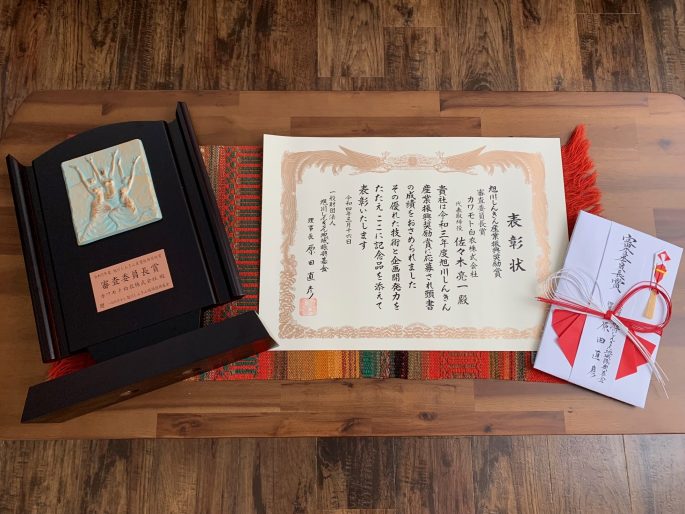 表彰状
旭川しんきん産業振興奨励賞
審査委員長賞
カワモト白衣株式会社
代表取締役 佐々木 亮一 殿
貴社は令和三年度旭川しんきん
産業振興奨励賞に応募され頭書
の成績をおさめられました
その優れた技術と企画開発力を
たたえ ここに記念品を添えて
表彰いたします
令和四年三月十六日
一般財団法人
旭川しんきん地域振興基金
理事長 原田直彦
審査委員長賞
カワモト白衣株式会社 殿
審査委員長賞
原田直彦